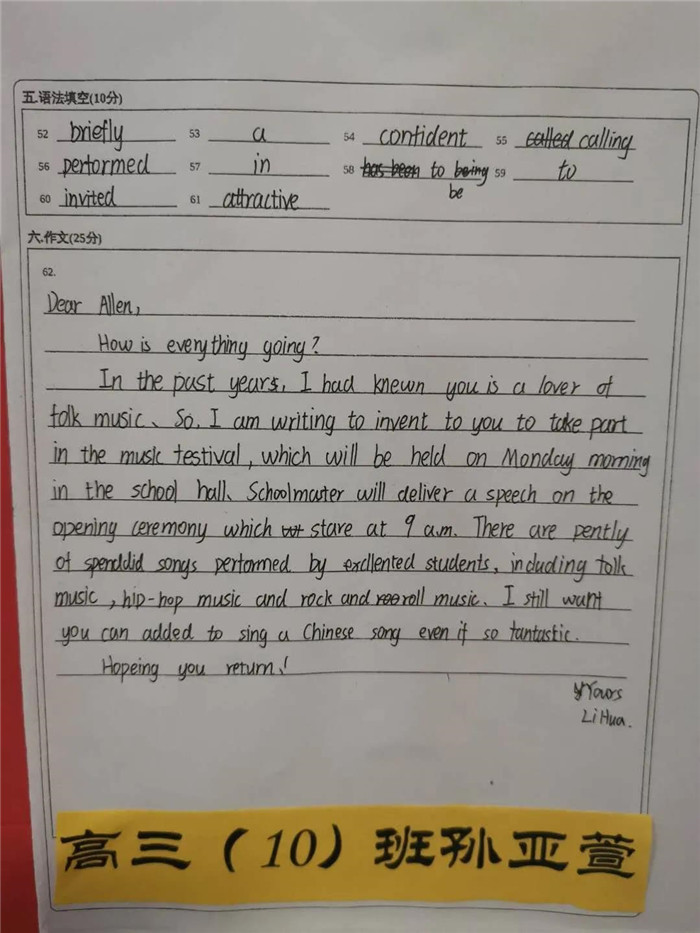 五.语法填空(10分)
52 briefly 53 a 54 confident 55 called calling
56 performed 57 in 58 has been to being be 59 to
60 invited 61 attractive
六.作文(25分)
62.
Dear Allen,
How is everything going?
In the past years, I had knewn you is a lover of
folk music、So, I am writing to invent to you to take part
in the music festival, which will be held on Monday morning
in the school hall、Schoolmaster will deliver a speech on the
opening ceremony which stare at 9 a.m. There are pently
of spenddid songs performed by excllented students, including folk
music, hip-hop music and rock and roll music. I still want
you can added to sing a Chinese song even if so fantastic.
Hopeing you return!
Yaors
Li Hua.
高三（10）班孙亚萱